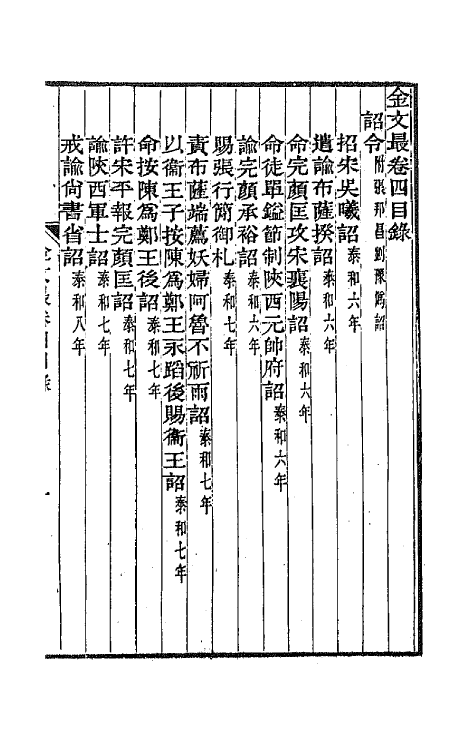 金文最卷四目錄
詔令附張邦昌劉豫僞詔
招宋吳曦詔泰和六年
遣諭布薩揆詔泰和六年
命完顏匡攻宋襄陽詔泰和六年
命徒單鎰節制陝西元帥府詔泰和六年
諭完顏承裕詔泰和六年
賜張行簡御札泰和七年
責布薩端薦妖婦阿魯不祈雨詔泰和七年
以衞王子按陳爲鄭王永蹈後賜衞王詔泰和七年
命按陳爲鄭王後詔泰和七年
許宋平報完顏匡詔泰和七年
諭陝西軍士詔泰和七年
戒諭尚書省詔泰和八年
金文最卷四目錄
一